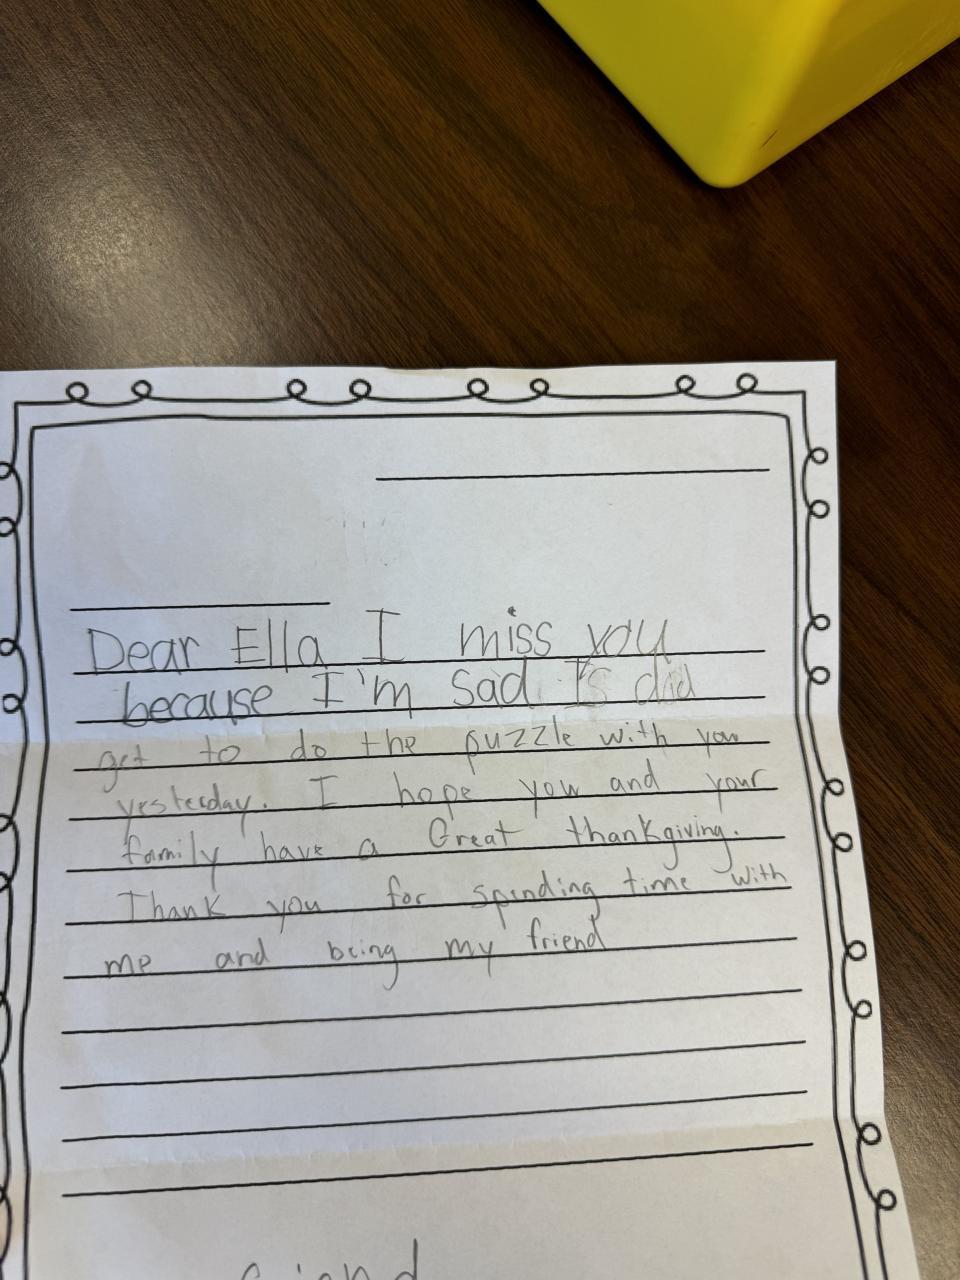 Dear Ella I miss you
because I'm sad. Is did
get to do the puzzle with you
yesterday. I hope you and your
family have a Great thankgiving.
Thank you for spending time with
me and being my friend
friend